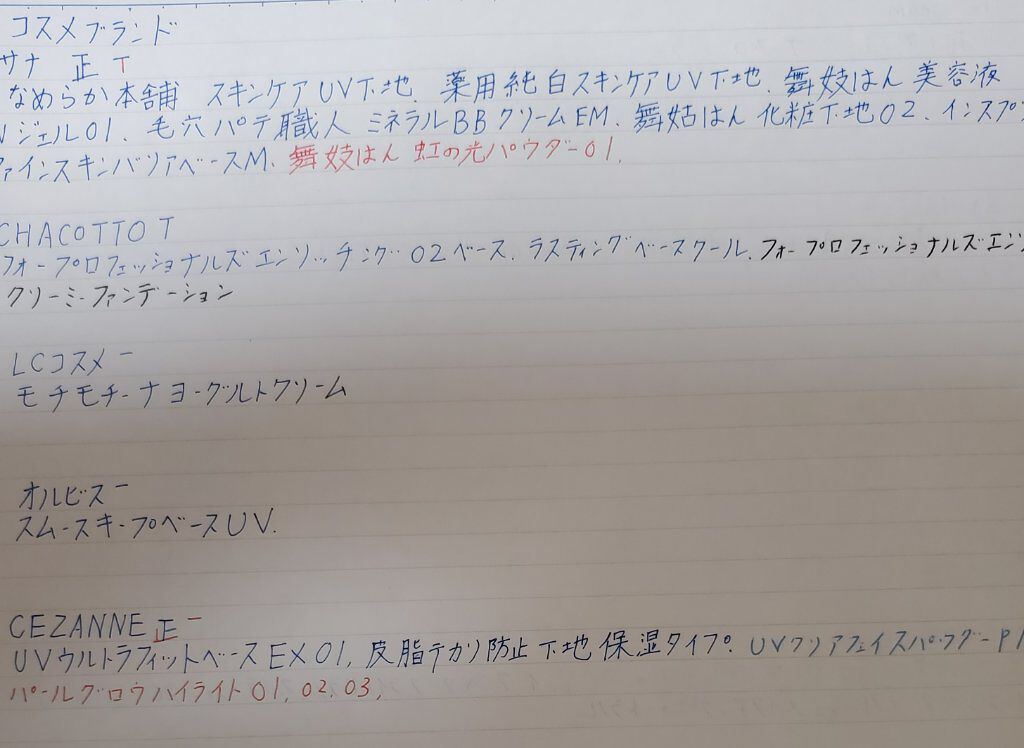 コスメブランド
サナ 正 T
なめらか本舗 スキンケアUV下地、薬用純白スキンケアUV下地、舞妓はん 美容液
ジェル01、毛穴パテ職人 ミネラルBBクリームEM、舞姑はん 化粧下地02、インスプ
ァインスキンバリアベースM、舞妓はん 虹の光パウダー01、
CHACOTTO T
フォープロフェッショナルズエンリッチング02ベース、ラスティングベースクール、フォープロフェッショナルズエン
クリーミーファンデーション
LCコスメ 一
モチモチーナヨーグルトクリーム
オルビス 一
スムースキープベースUV.
CEZANNE 正 一
UVウルトラフィットベースEX01, 皮脂テカリ防止下地保湿タイプ、UVクリアフェイスパウダーP1
パールグロウハイライト01, 02, 03,